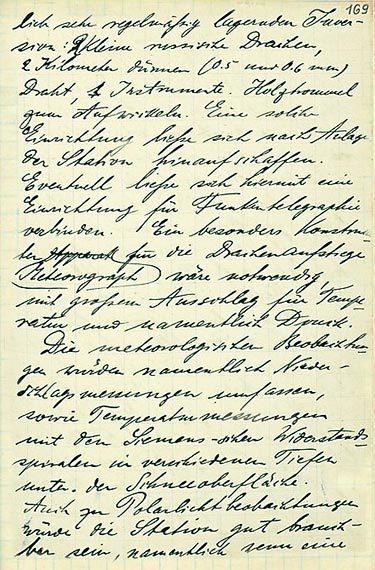 169
lich sehr regelmäßig lagernden Inver-
sion: 2 kleine russische Drachen,
2 Kilometer dünnen (0.5 und 0.6 mm)
Draht, 1 Instrumente. Holztrommel
zum Aufwickeln. Eine solche
Einrichtung ließe sich nach Anlage
der Station hinaufschaffen.
Eventuell ließe sich hiermit eine
Einrichtung für Funkentelegraphie
verbinden. Ein besonders konstruier-
ter Apparat für die Drachenaufstiege
(Meteorograph) wäre notwendig
mit großem Ausschlag für Tempe-
ratur und namentlich Druck.
Die meteorologischen Beobachtun-
gen würden namentlich Nieder-
schlagsmessungen umfassen,
sowie Temperaturmessungen
mit den Siemens-schen Widerstands-
spiralen in verschiedenen Tiefen
unter der Schneeoberfläche.
Auch zu Polarlichtbeobachtungen
würde die Station gut brauch-
bar sein, namentlich wenn eine